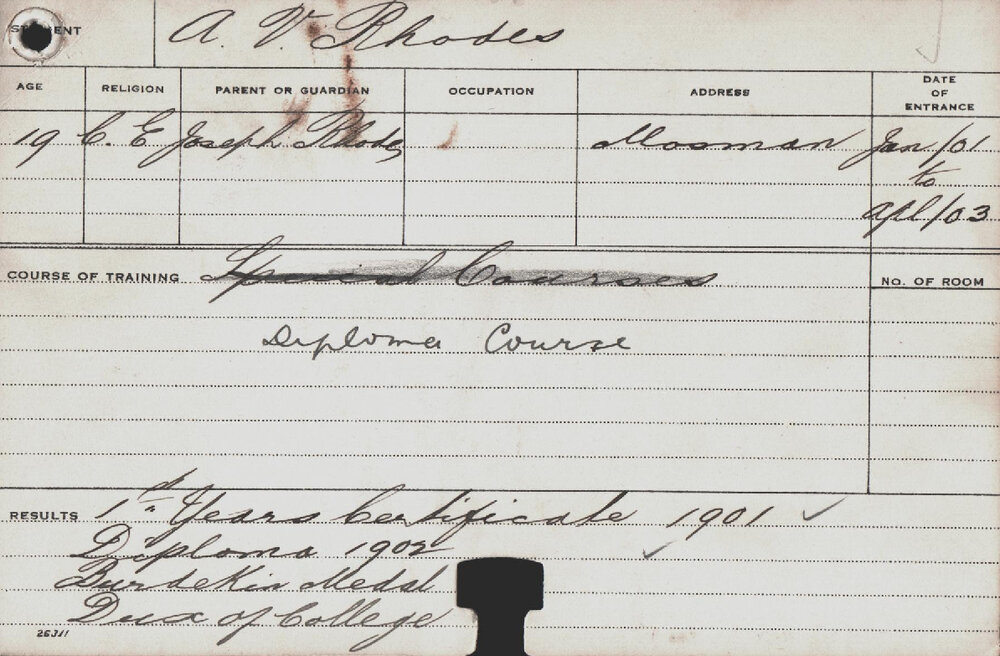 STUDENT A. V. Rhodes
AGE RELIGION PARENT OR GUARDIAN OCCUPATION ADDRESS DATE OF ENTRANCE
19 C. E Joseph Rhodes Mosman Jan/01
to
Apl/03
COURSE OF TRAINING Special Courses NO. OF ROOM
Diploma Course
RESULTS 1st Years Certificate 1901 ✓
Diploma 1902 ✓
Burdekin Medal
Dux of College
26311